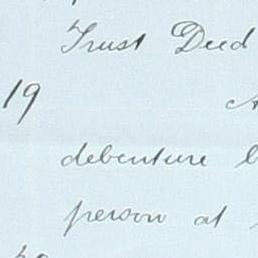 Trust Deed
19
debenture
person at